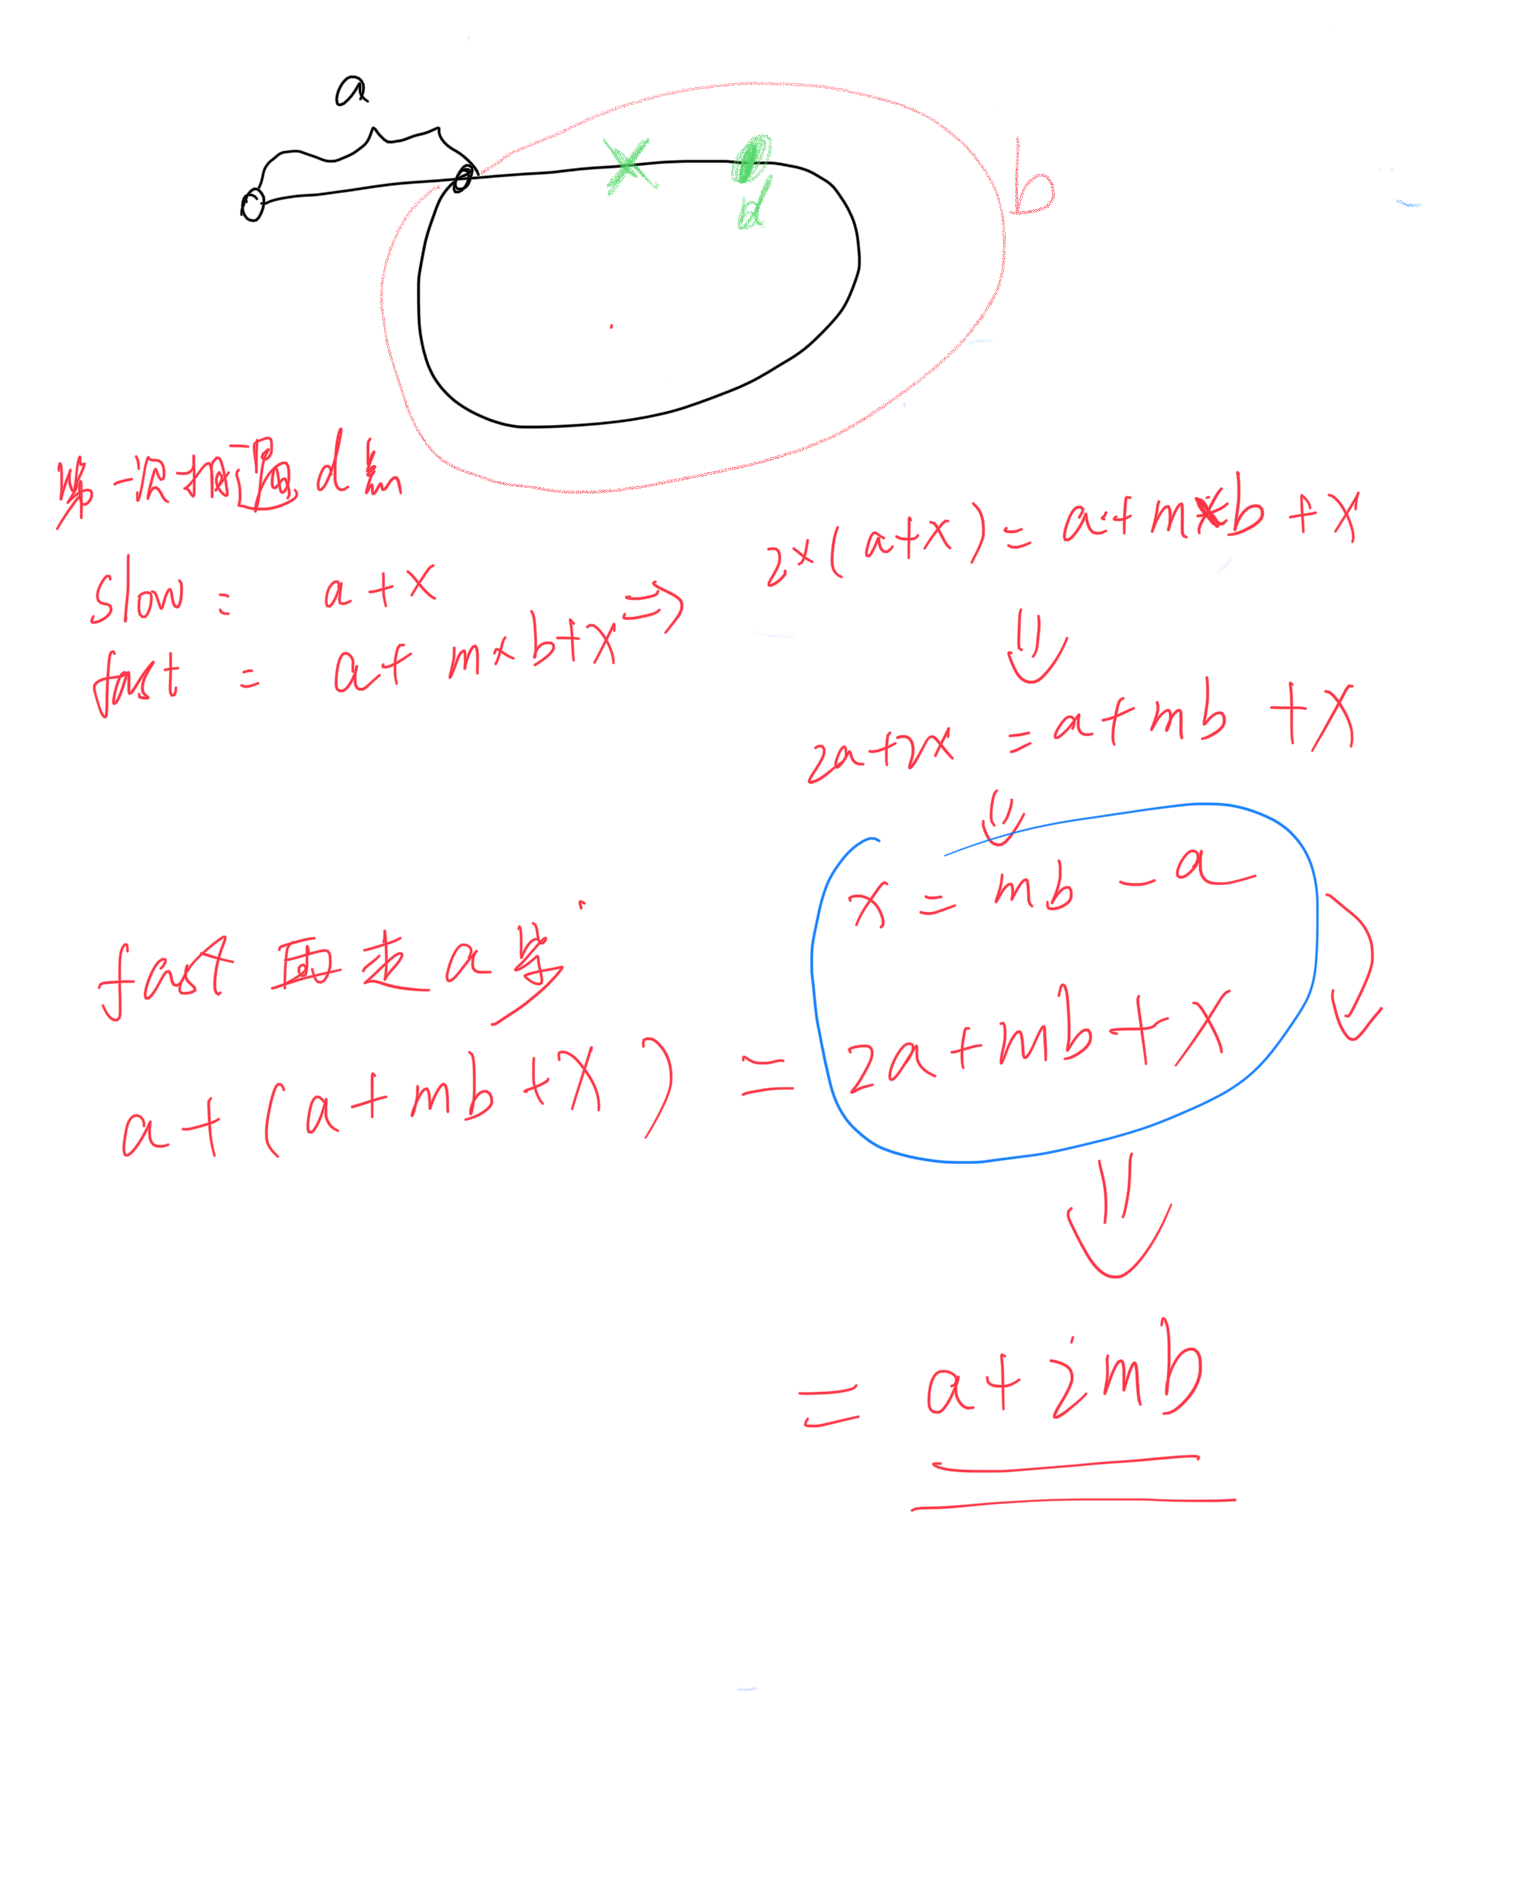 a
b
d
第一次相遇d点
slow: a+x
fast = a+ m×b+x ⇒
2×(a+x) = a+m×b+x
⇓
2a+2x = a+mb+x
⇓
x = mb-a
fast 再走a步
a+(a+mb+x) = 2a+mb+x
⇓
= a+2mb